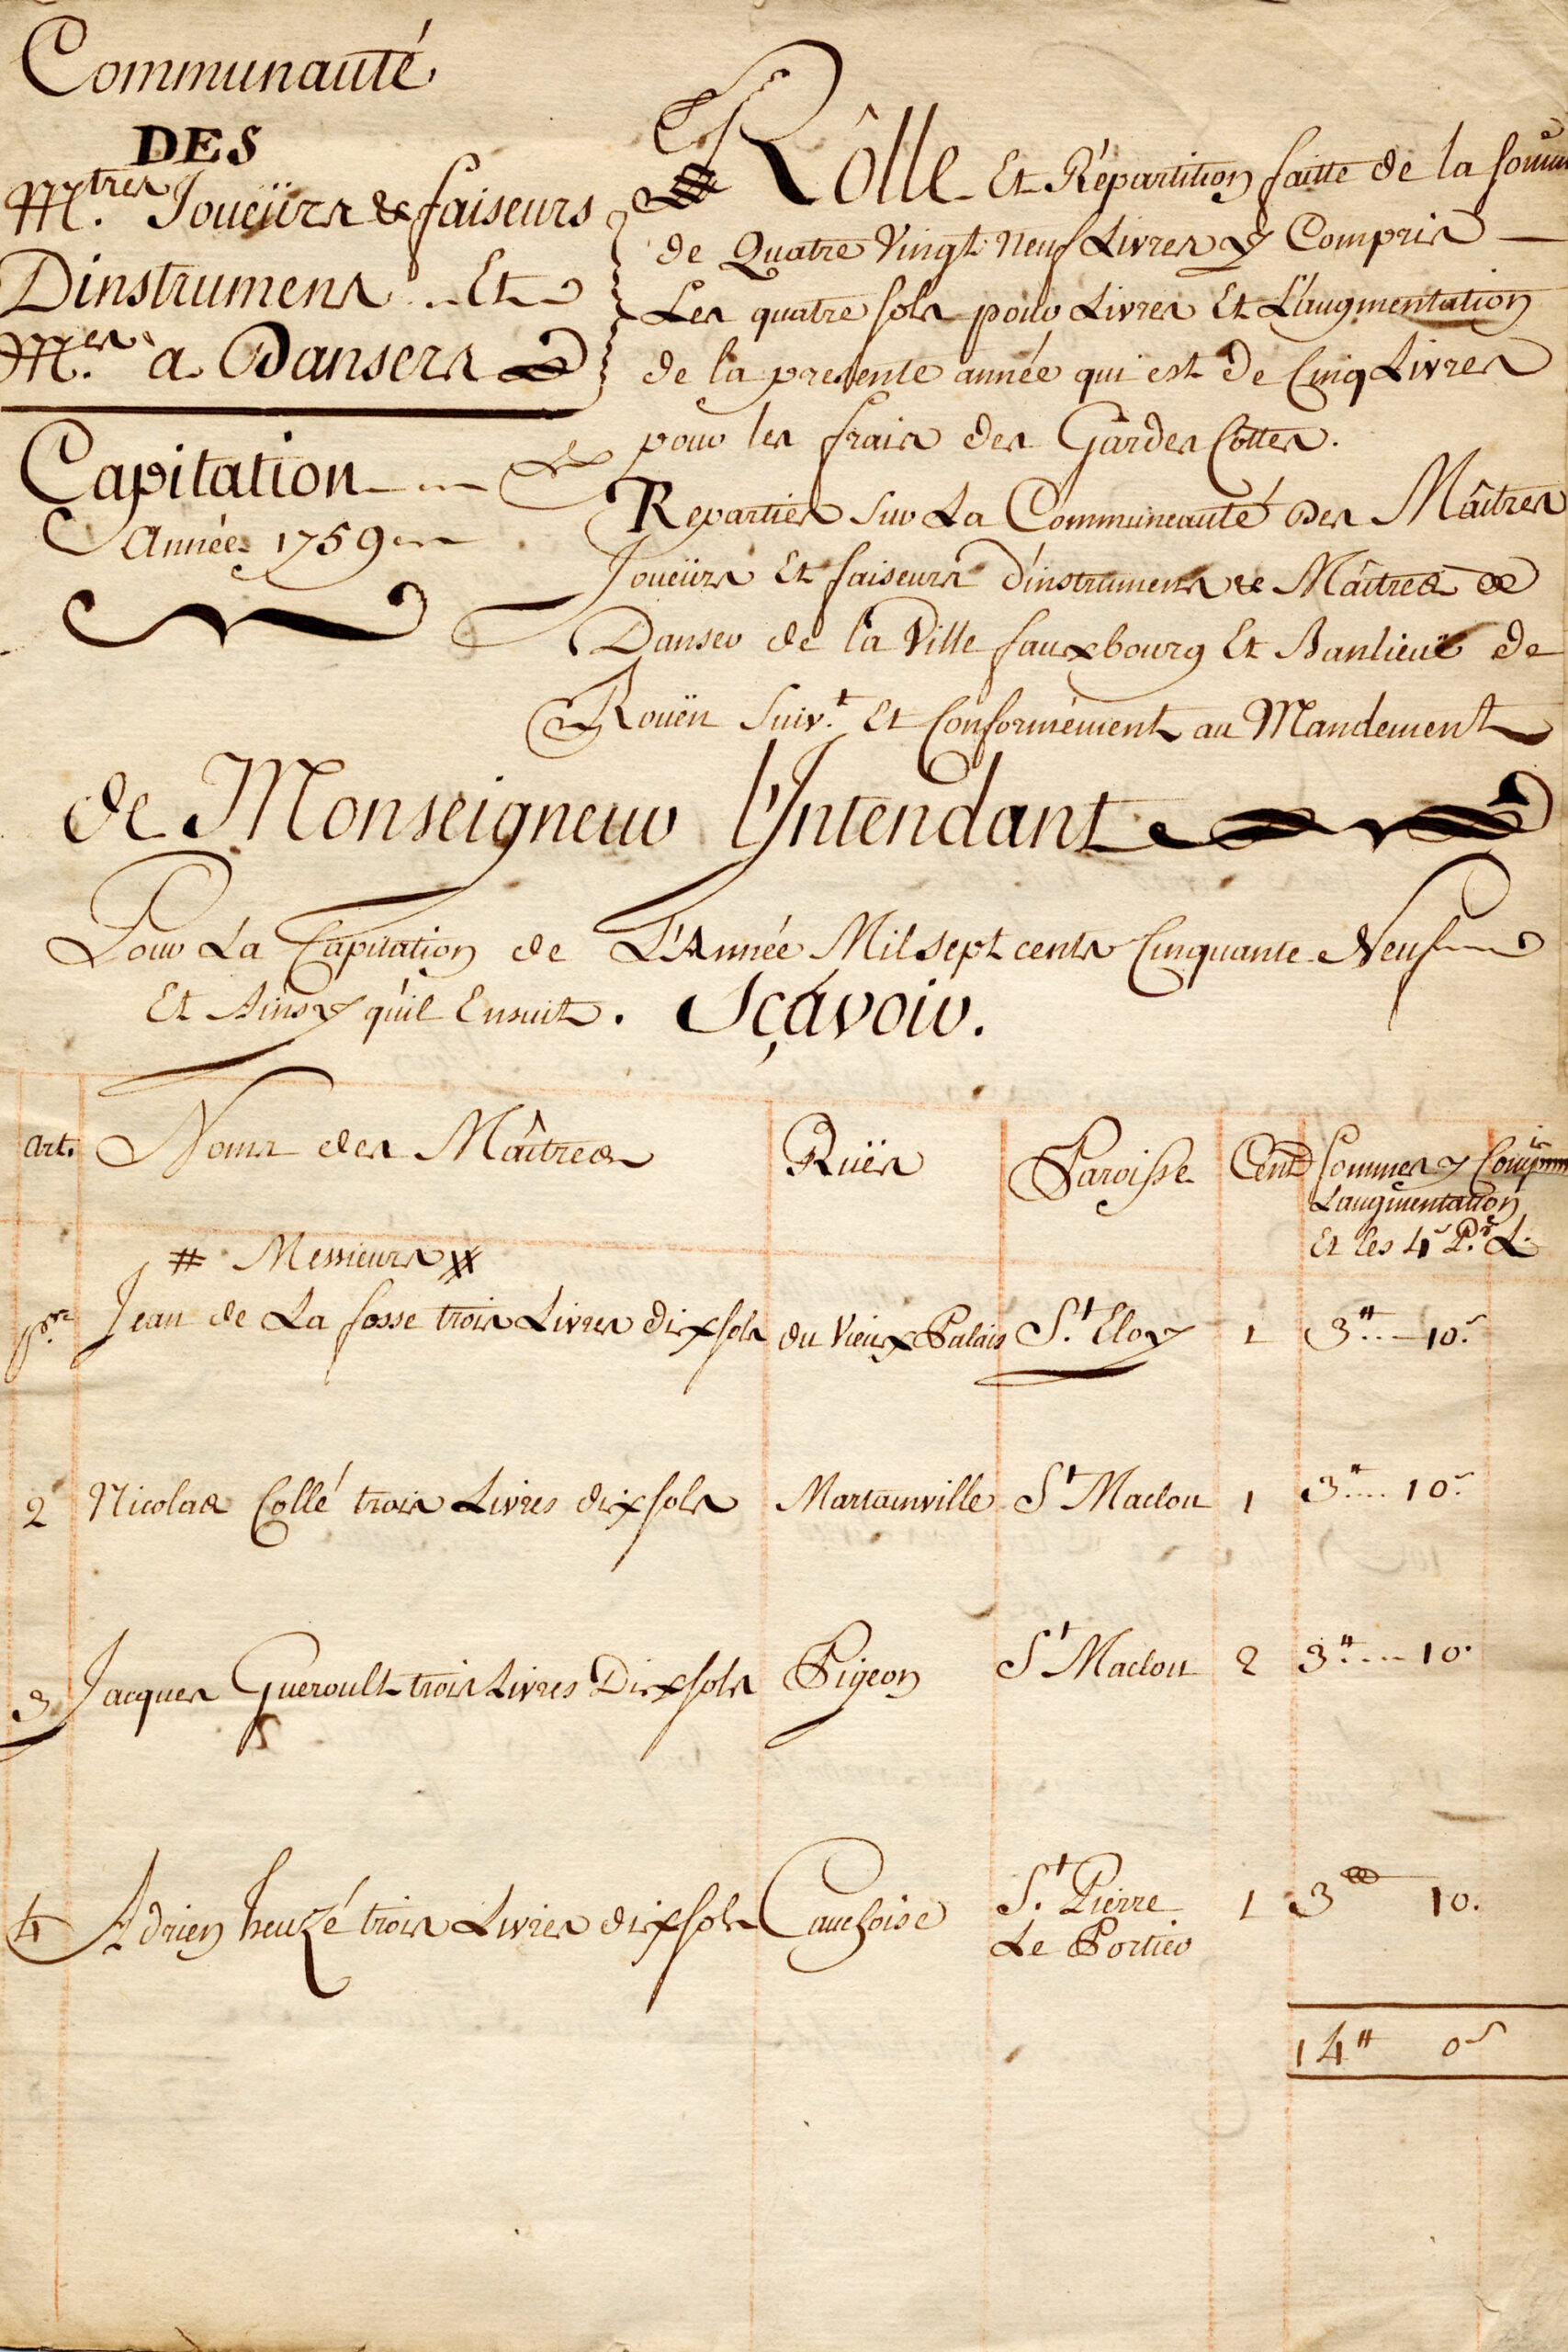 Communauté
DES
M.tres Joueürs & faiseurs
Dinstrumens .. Et
M.es a Dansers
Capitation
Année 1759
Rôlle Et Répartition faitte de la somme
de Quatre Vingt Neuf Livres y Compris
Les quatre sols pour Livres Et L'augmentation
de la presente année qui est de Cinq Livres
pour les frais des Gardes Costes.
Repartier sur La Communeauté Des Maîtres
Joueürs Et faiseurs d'instrumens & Maîtres de
Danser de la Ville fauxbourg Et Banlieuë de
Rouën Suiv.t Et Conformément au Mandement
de Monseigneur L'Intendant
Pour La Capitation de L'Année Mil sept cents Cinquante Neuf
Et Ainsy qu'il Ensuit. Sçavoir.
art. Noms des Maîtres Rüës Paroisse Cent Sommes y Compris
L'augmentation
Et les 4s P.r L.
# Messieurs #
p.er Jean de La fosse trois Livres dix sols du Vieux Palais S.t Eloy 1 3# 10s
2 Nicolas Collé trois Livres dix sols Martainville St Maclou 1 3# 10s
3 Jacques Gueroult trois Livres Dix sols Pigeon St Maclou 2 3# 10.
4 Adrien heuzé trois Livres dix sols Cauchoise S.t Pierre 1 3 10.
Le Portier
14# 0s